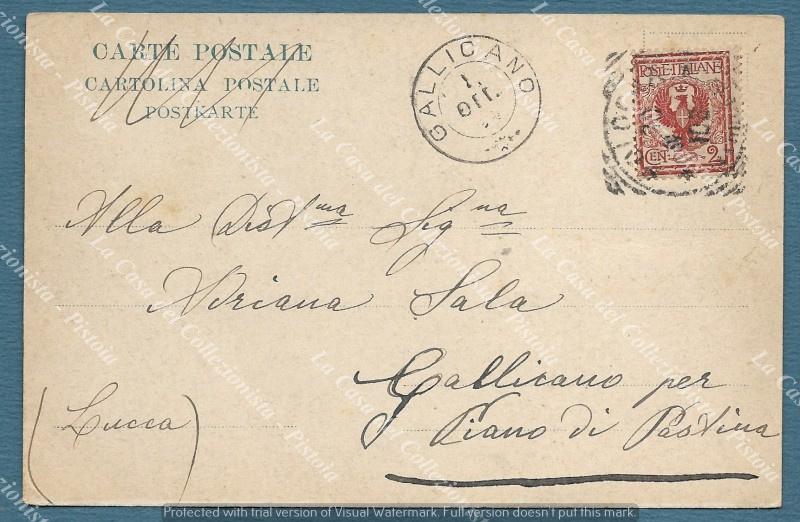 CARTE POSTALE
CARTOLINA POSTALE
POSTKARTE
GALLICANO
1.
OTT.
POSTE·ITALIANE
CEN. 2
Alla Dist.ma Sig.na
Adriana Sala
Gallicano per
Piano di Pastina
(Lucca)
La Casa del Collezionista - Pistoia
Protected with trial version of Visual Watermark. Full version doesn't put this mark.